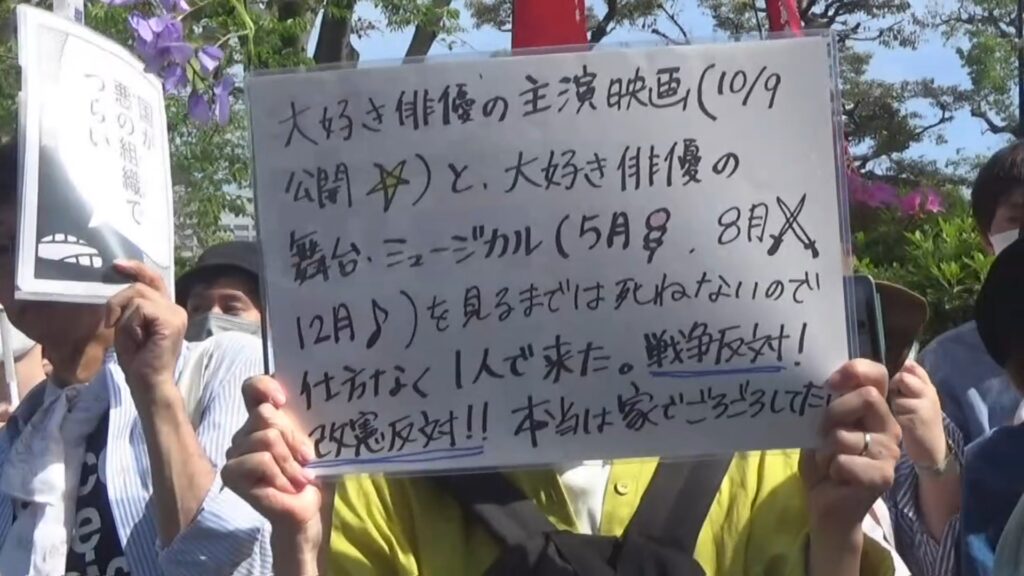 国が
悪の組織で
つらい
大好き俳優の主演映画(10/9
公開☆)と、大好き俳優の
舞台・ミュージカル(5月、8月
12月♪)を見るまでは死ねないので
仕方なく1人で来た。戦争反対!
改憲反対!! 本当は家でごろごろしてたい